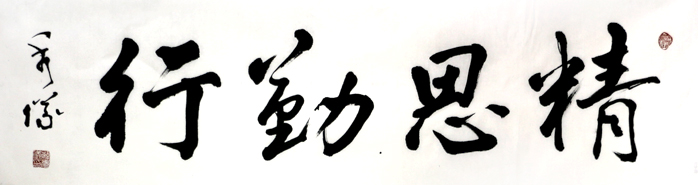 精思勤行